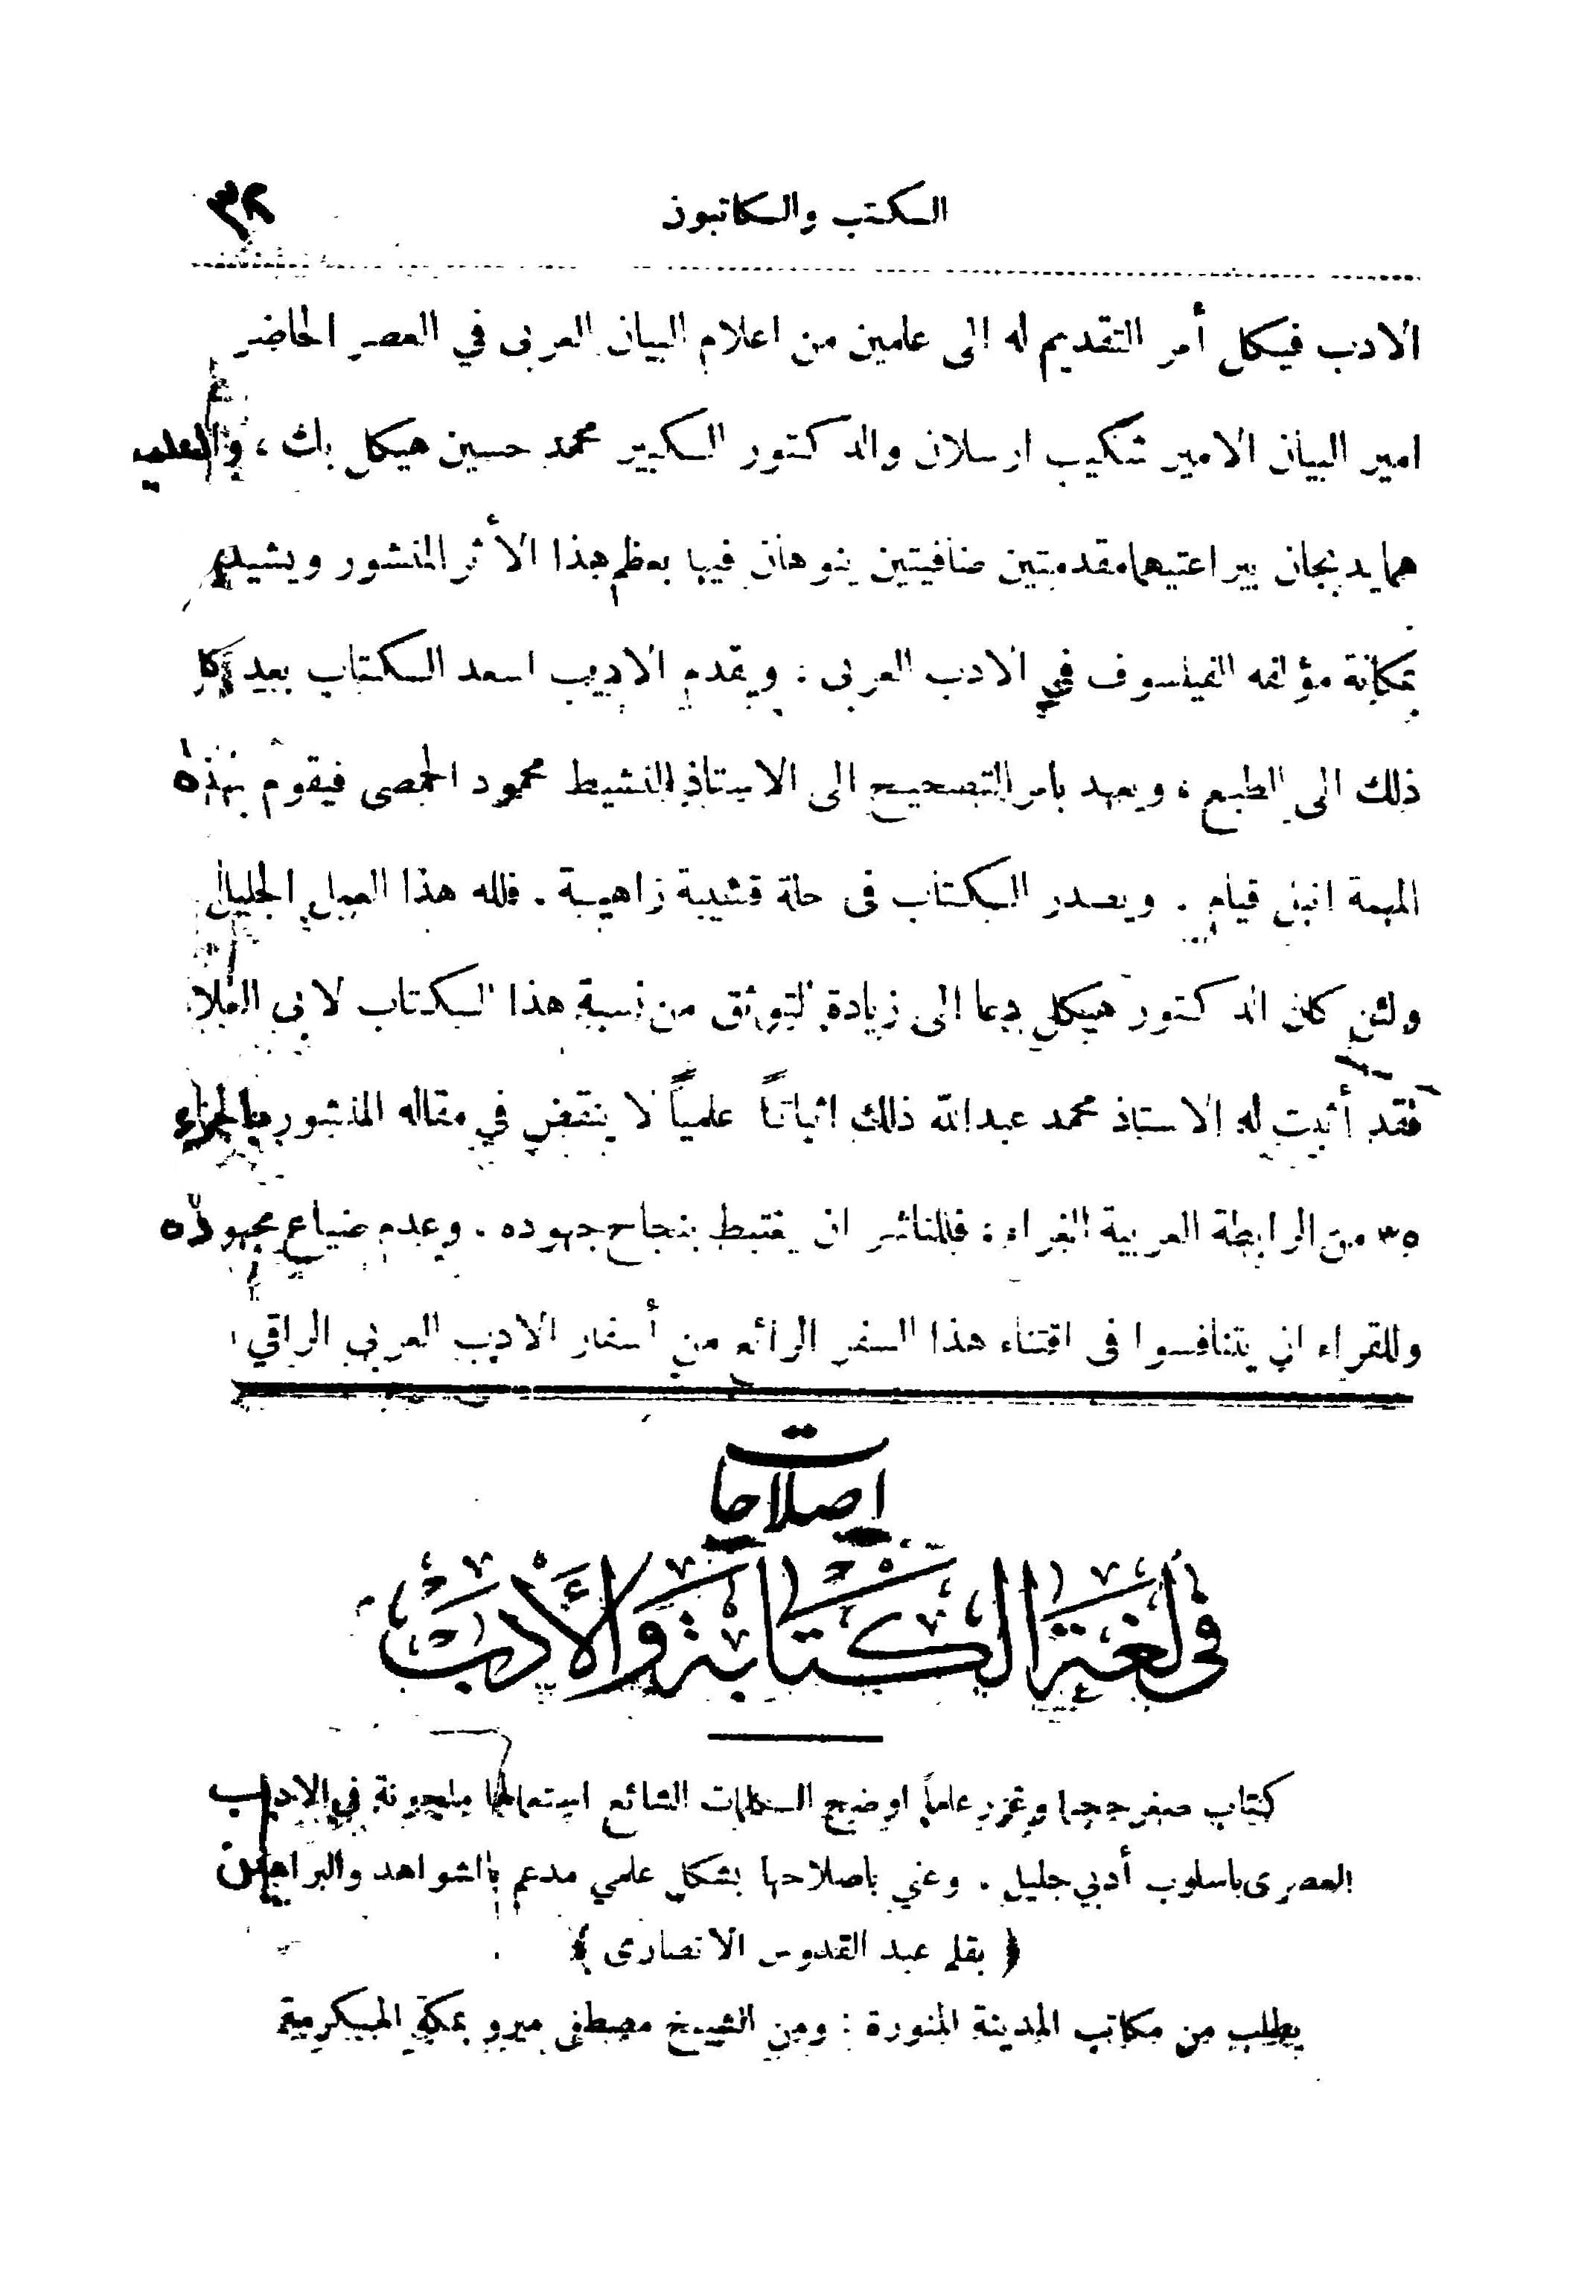 الكتب والكاتبون
٣٢
الادب فيكل أمر التقديم له الى علمين من اعلام البيان العربى في العصر الحاضر
امير البيان الامير شكيب ارسلان والدكتور الكبير محمد حسين هيكل بك ،
هما يدبجان بيراعتيهما مقدمتين ضافيتين ينوهان فيها بعظم هذا الأثر المنشور ويشيد
بمكانة مؤلفه الفيلسوف في الادب العربى . ويقدم الاديب اسعد الكتاب بعيد
ذلك الى الطبع ، ويعهد بامر التصحيح الى الاستاذ النشيط محمود الحمصى فيقوم بهذه
المهمة انبل قيام . ويصدر الكتاب فى حلة قشيبة زاهية . فلله هذا العمل الجليل
ولئن كان الدكتور هيكل دعا الى زيادة لتوثق من نسبة هذا الكتاب لابى العلا
فقد أثبت له الاستاذ محمد عبدالله ذلك اثباتاً علمياً لا ينقض في مقاله المنشور بالجزاء
٣٥ من الرابطة العربية الغراء : فللناشر ان يغتبط بنجاح جهوده . وعدم ضياع مجهوده
وللقراء ان يتنافسوا فى اقتناء هذا السفر الرائع من أسفار الادب العربي الراقي .
اصلاحات
فى لغة الكتابة والأدب
كتاب صغر حجما وغزر علماً اوضح الكلمات الشائع استعمالها ملحونة في الادب
العصرى باسلوب أدبي جليل . وعني باصلاحها بشكل علمي مدعم بالشواهد والبراهين
﴿ بقلم عبد القدوس الانصارى ﴾
يطلب من مكاتب المدينة المنورة : ومن الشيخ مصطفى ميرو بمكة المكرمة